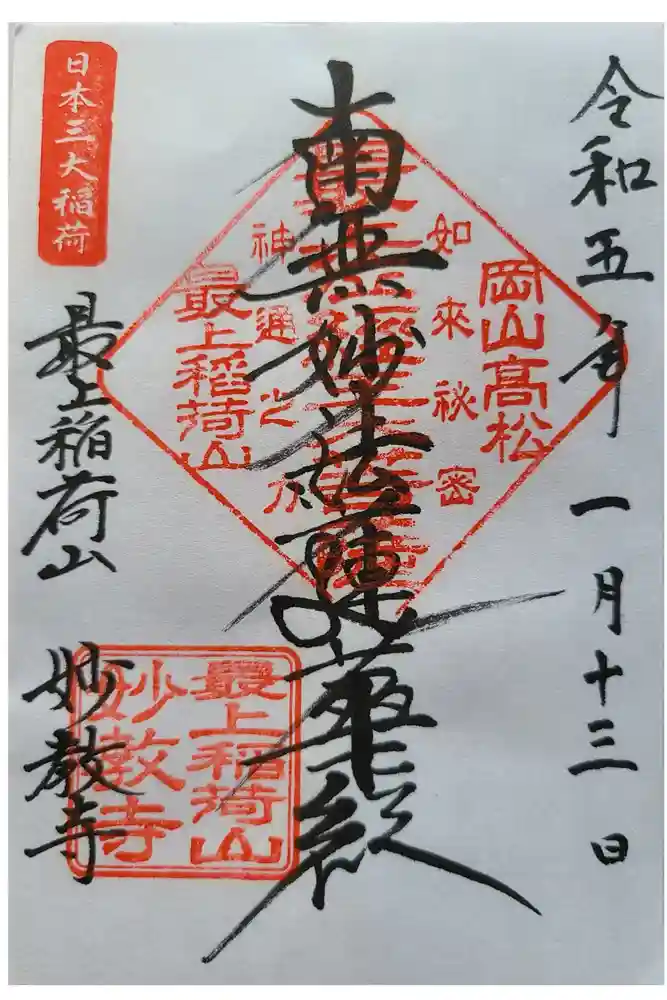 令和五年 一月十三日
岡山高松
如来秘密
南無妙法蓮華経
神通之力
最上稲荷山
日本三大稲荷
最上稲荷山 妙教寺
最上稲荷山
妙教寺